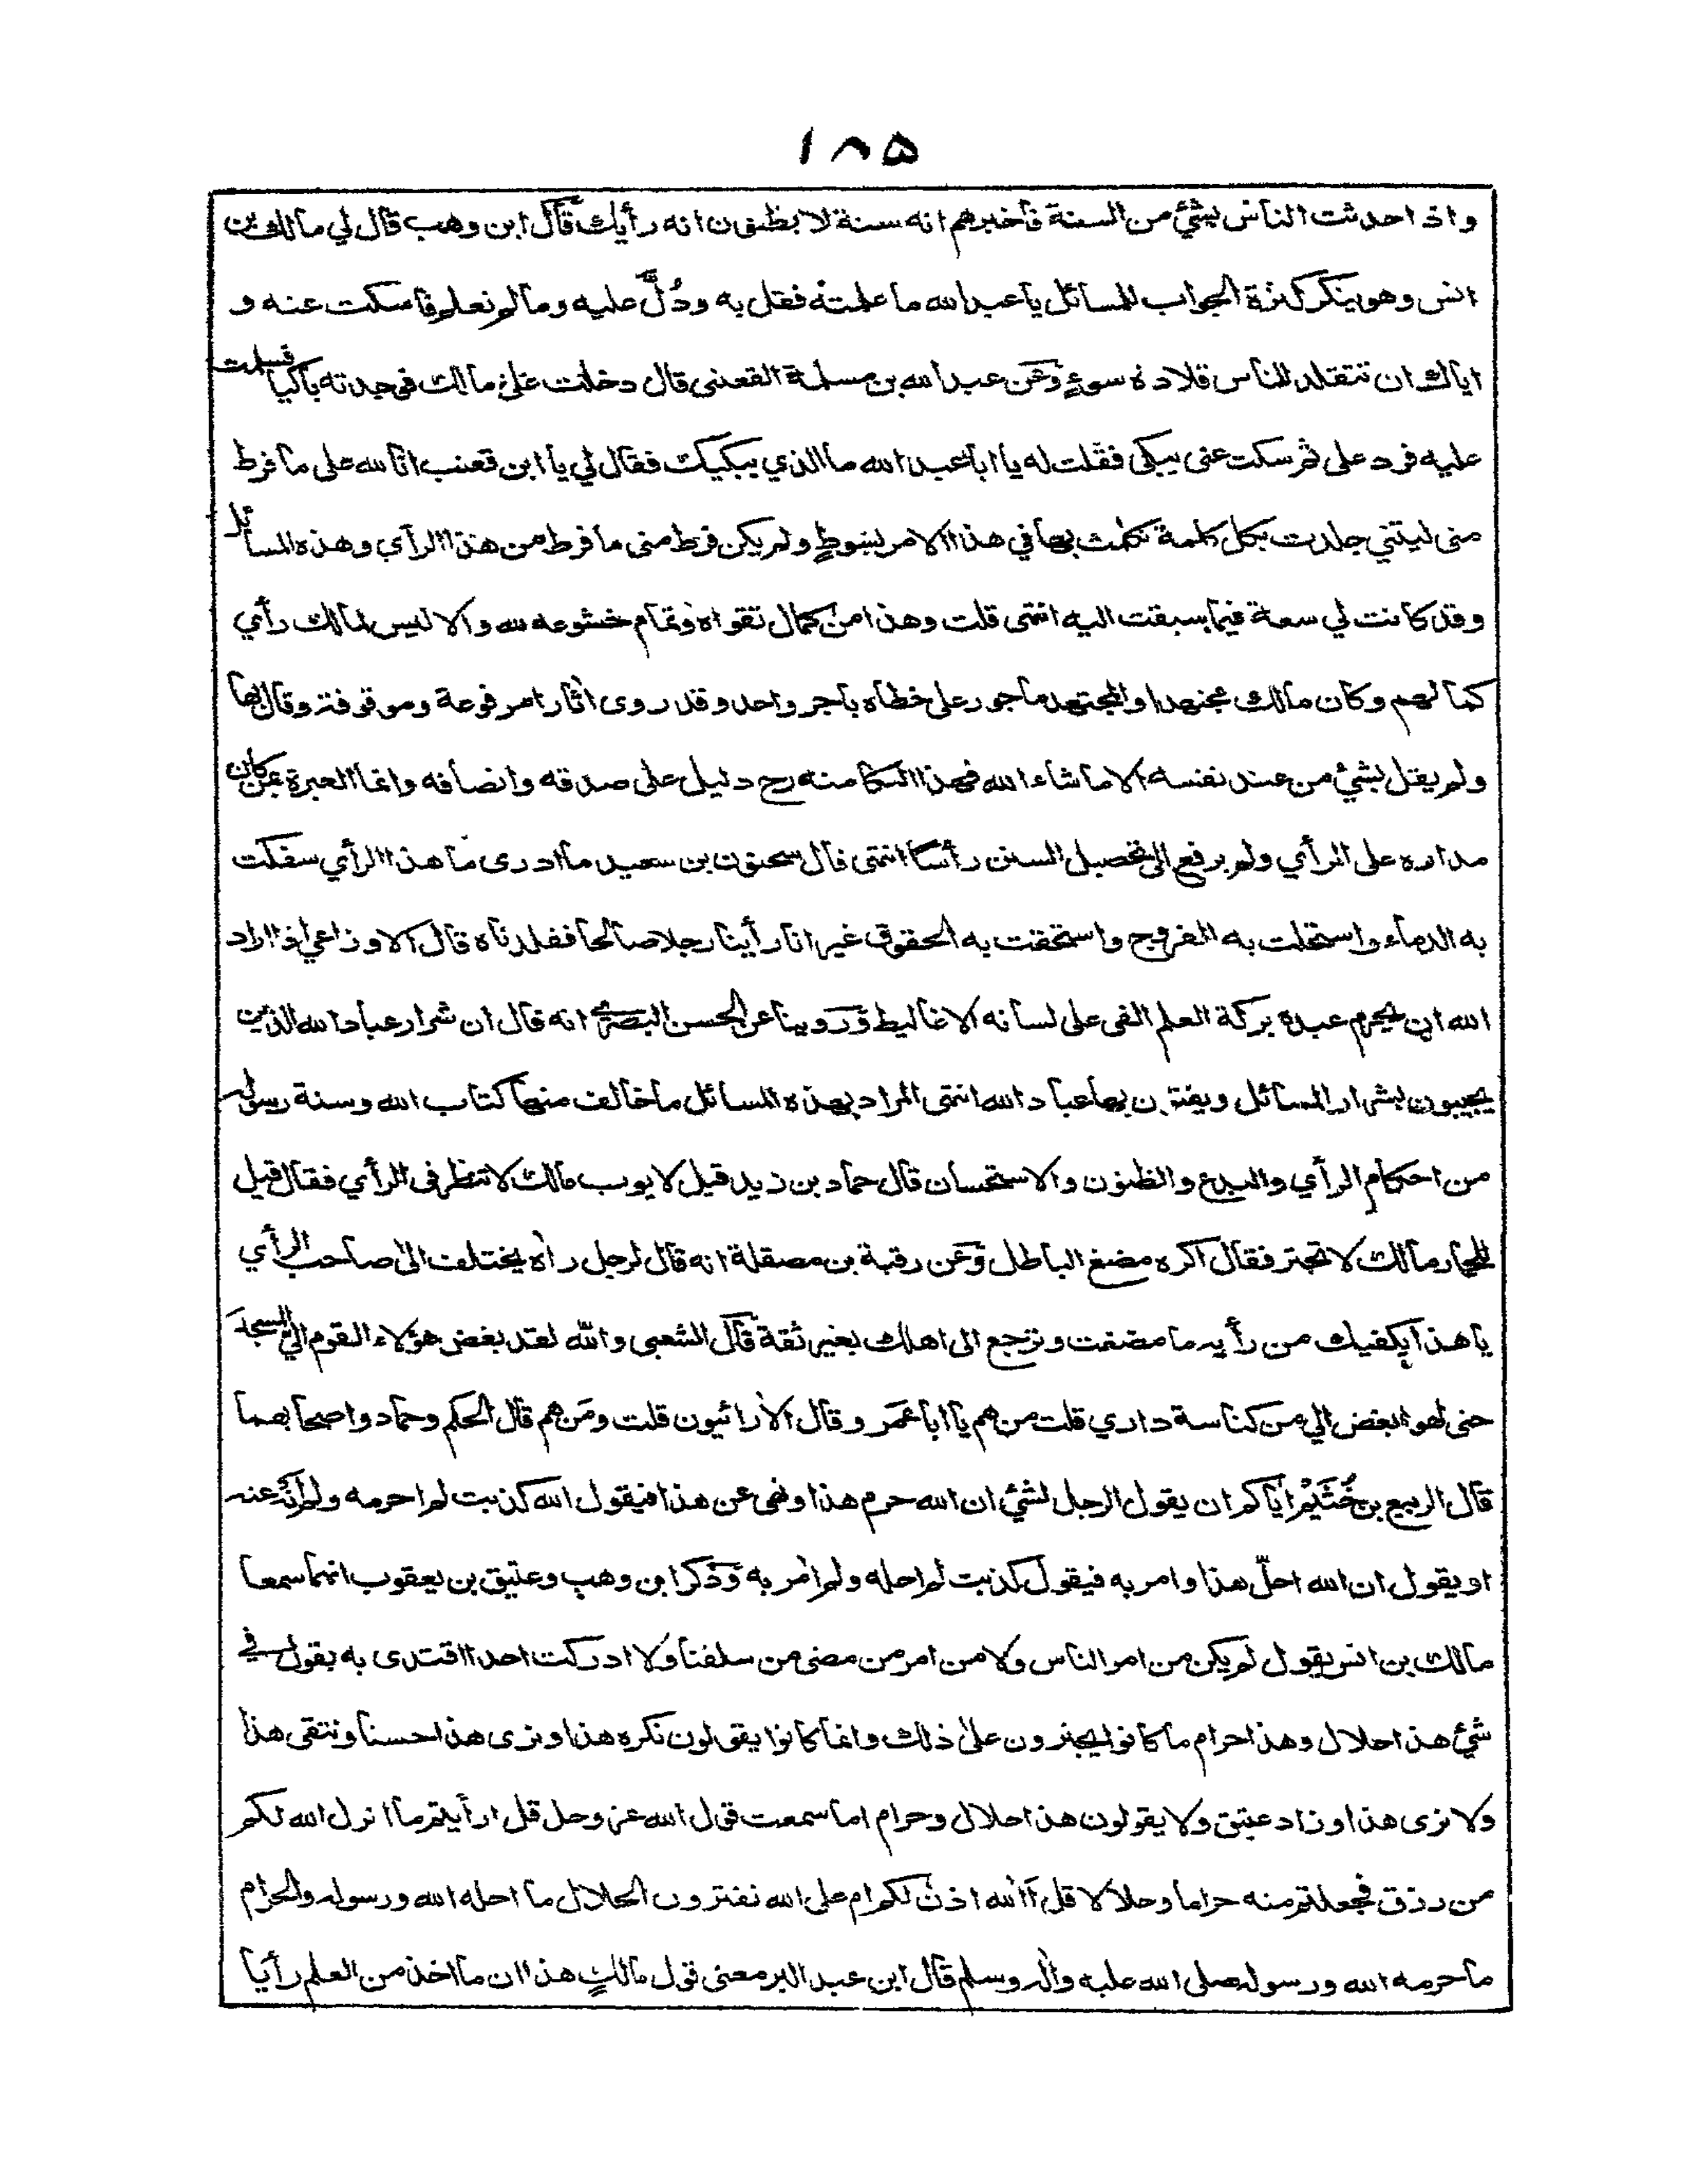 ١٨٥
واذا حدثت الناس بشئ من السنة فأخبرهم انه سنة لا يظنون انه رأيك قال ابن وهب قال لي مالك بن
انس وهو ينكر كثرة الجواب للمسائل يا عبد الله ما علمته فقل به ودُلَّ عليه وما لم تعلم فاسكت عنه و
اياك ان تتقلد للناس قلادة سوءٍ وعن عبد الله بن مسلمة القعنبي قال دخلت على مالك فوجدته باكيا فسلمت
عليه فرد علي ثم سكت عني يبكي فقلت له يا ابا عبد الله ما الذي يبكيك فقال لي يا ابن قعنب انا لله على ما فرط
مني ليتني جلدت بكل كلمة تكلمت بها في هذا الامر بسوطٍ ولم يكن فرط مني ما فرط من هذا الرأي وهذه المسائل
وقد كانت لي سعة فيما سبقت اليه انتهى قلت وهذا من كمال تقواه وتمام خشوعه لله والا ليس لمالك رأي
كما لهم وكان مالك مجتهدا والمجتهد مأجور على خطأه بأجر واحد وقد روى اٰثارا مرفوعة وموقوفة وقال بها
ولم يقل بشئ من عند نفسه الا ما شاء الله فهذا البكا منه رح دليل على صدقه وانصافه وانما العبرة عمن كان
مداره على الرأي ولم يرفع الى تحصيل السنن رأسا انتهى قال سحنون بن سعيد ما ادرى ما هذا الرأي سفكت
به الدماء واستحلت به الفروج واستحقت به الحقوق غير انا رأينا رجلا صالحا فقلدناه قال الاوزاعي اذا اراد
الله ان يحرم عبده بركة العلم القى على لسانه الاغاليط وروينا عن الحسن البصري انه قال ان شرار عباد الله الذين
يجيبون بشرار المسائل ويفتنون بها عباد الله انتهى المراد بهذه المسائل ما خالف منها كتاب الله وسنة رسوله
من احكام الرأي والبدع والظنون والاستحسان قال حماد بن زيد قيل لايوب مالك لا تنظر في الرأي فقال قيل
للحمار مالك لا تجتر فقال اكره مضغ الباطل وعن رقبة بن مصقلة انه قال لرجل راٰه يختلف الى صاحب الرأي
يا هذا يكفيك من رأيه ما مضغت وترجع الى اهلك بغير ثقة قال الشعبي والله لقد بغض هؤلاء القوم الي المسجد
حتى لهو ابغض الي من كناسة داري قلت من هم يا ابا عمر وقال الاٰرائيون قلت ومن هم قال الحكم وحماد واصحابهما
قال الربيع بن خُثَيْم اياكم ان يقول الرجل لشئ ان الله حرم هذا ونهى عن هذا فيقول الله كذبت لم احرمه ولم انه عنه
او يقول ان الله احلّ هذا وامر به فيقول كذبت لم احله ولم اٰمر به وذكر ابن وهب وعتيق بن يعقوب انهما سمعا
مالك بن انس يقول لم يكن من امر الناس ولا من امر من مضى من سلفنا ولا ادركت احدا اقتدى به يقول في
شئ هذا حلال وهذا حرام ما كانوا يجترون على ذلك وانما كانوا يقولون نكره هذا ونرى هذا حسنا ونتقى هذا
ولا نرى هذا وزاد عتيق ولا يقولون هذا حلال وحرام اما سمعت قول الله عز وجل قل ارأيتم ما انزل الله لكم
من رزق فجعلتم منه حراما وحلالا قل آالله اذن لكم ام على الله تفترون الحلال ما احله الله ورسوله والحرام
ما حرمه الله ورسوله صلى الله عليه واٰله وسلم قال ابن عبد البر معنى قول مالكٍ هذا ان ما اخذ من العلم رأيا